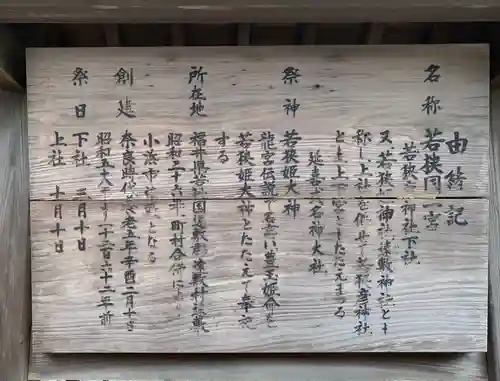 由緒記
名称 若狭国一宮
若狭姫神社下社
又、若狭彦神社遠敷神社とも
称し上社を併せて若狭彦神社
とも上下宮ともたたえまつる
延喜式名神大社
祭神 若狭姫大神
龍宮伝説で名高い豊玉姫命を
若狭姫大神とたたえて奉斎
する
所在地 福井県若狭国遠敷郡遠敷村遠敷
昭和二十六年、町村合併により
小浜市遠敷となる
創建 奈良時代養老五年辛酉二月十日
昭和五十八年より千二百六十二年前
祭日 下社 三月十日
上社 十月十日